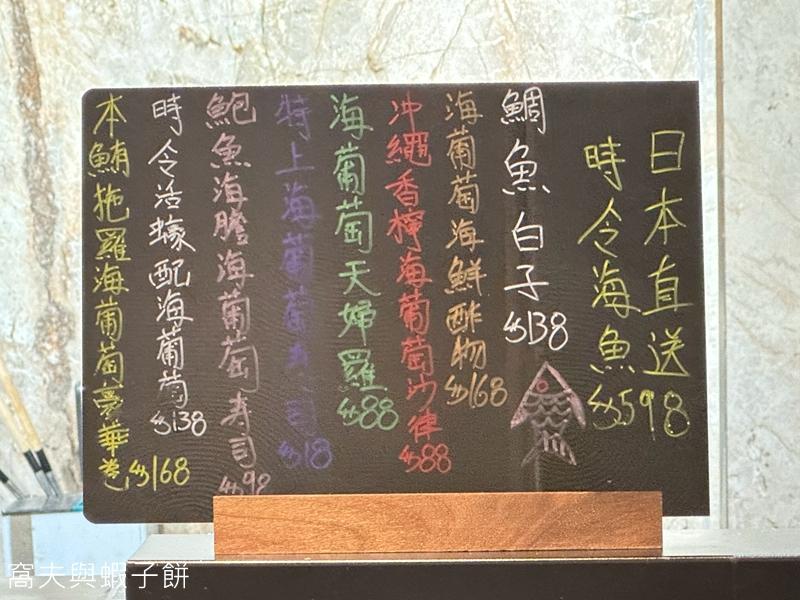 日本直送
時令海魚$598
鯛魚白子$138
海葡萄海鮮酢物$168
沖繩香檸海葡萄沙律$88
海葡萄天婦羅$88
特上海葡萄寿司$18
鮑魚海膽海葡萄寿司$98
時令活蠔配海葡萄$138
本鮪拖羅海葡萄夢華卷$168
窩夫與蝦子餅